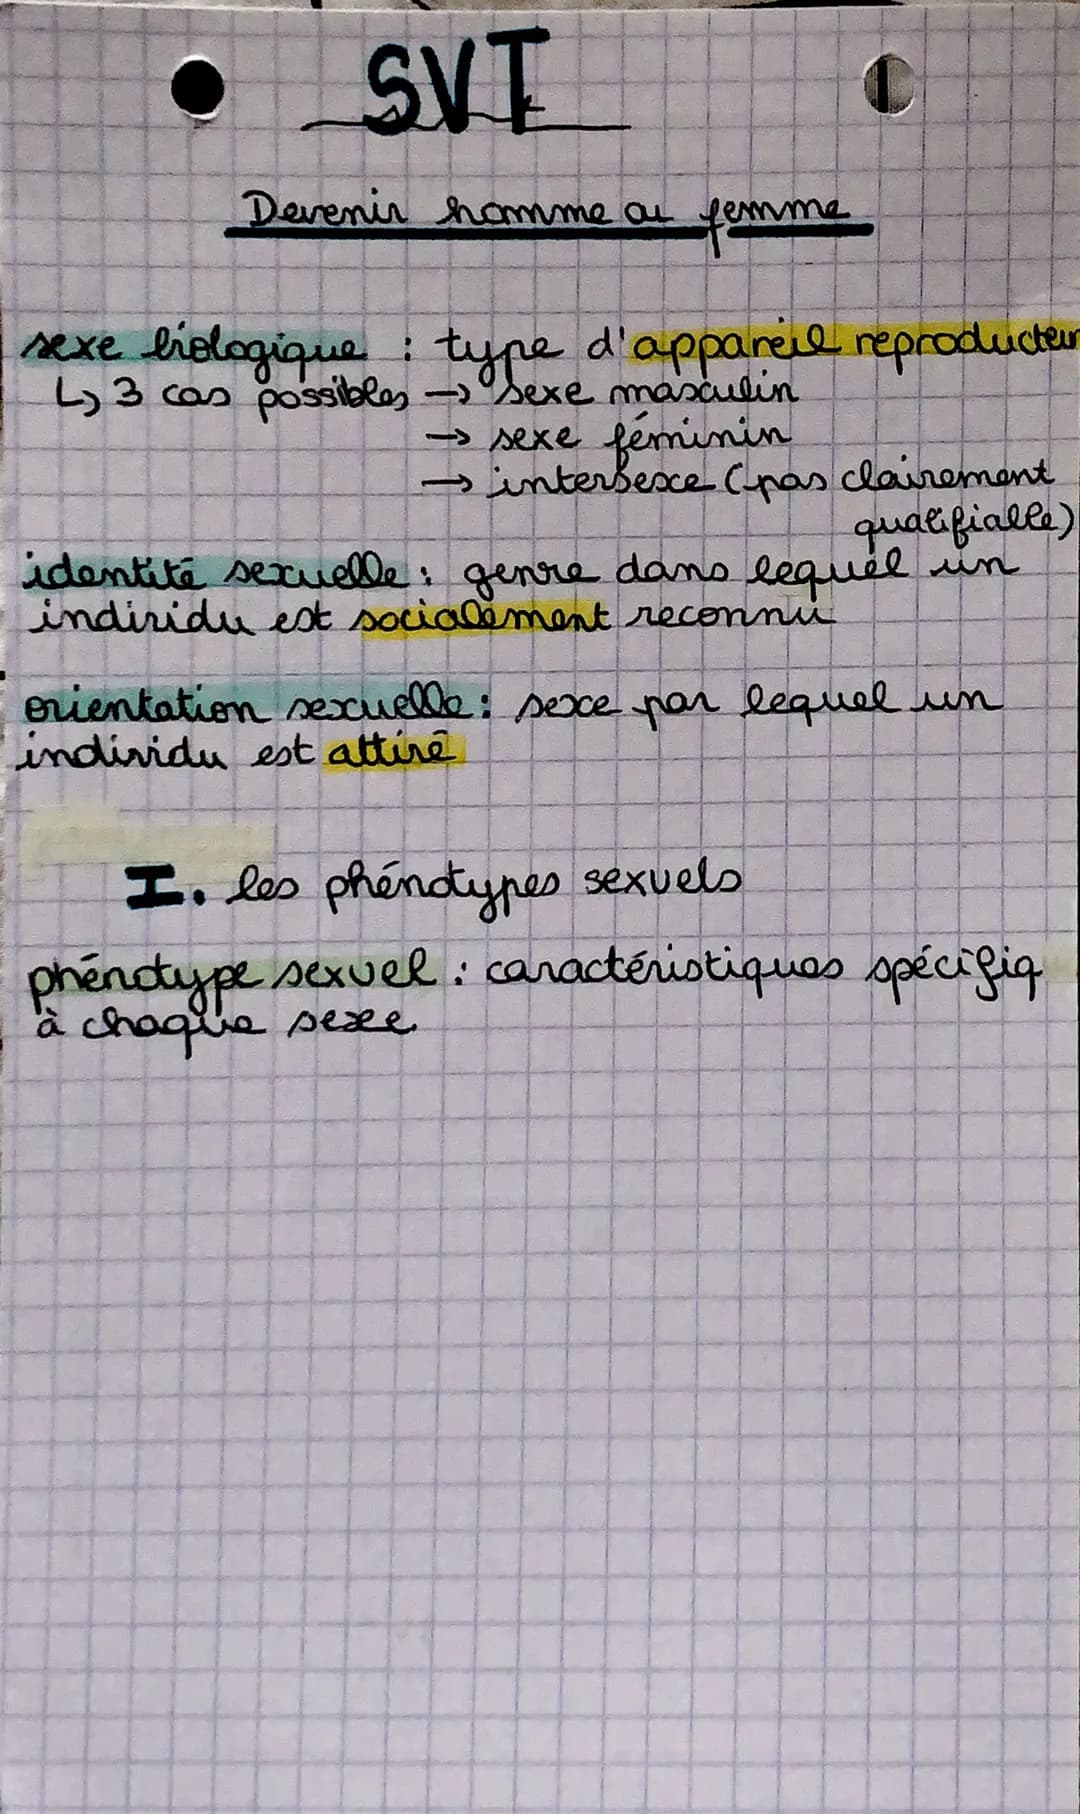 SVT
Devenir homme ou femme
sexe biologique : type d'appareil reproducteur
↳ 3 cas possibles → sexe masculin
→ sexe féminin
→ intersexe (pas clairement
qualifiable)
identité sexuelle : genre dans lequel un
individu est socialement reconnu
orientation sexuelle : sexe par lequel un
individu est attiré
I. les phénotypes sexuels
phénotype sexuel : caractéristiques spécifiq
à chaque sexe